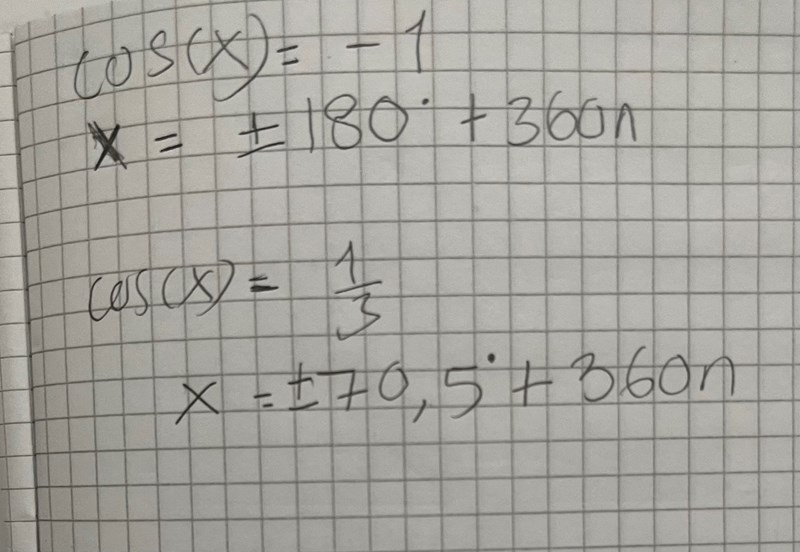 cos(x) = -1
x = ±180° + 360n
cos(x) = 1/3
x = ±70,5° + 360n